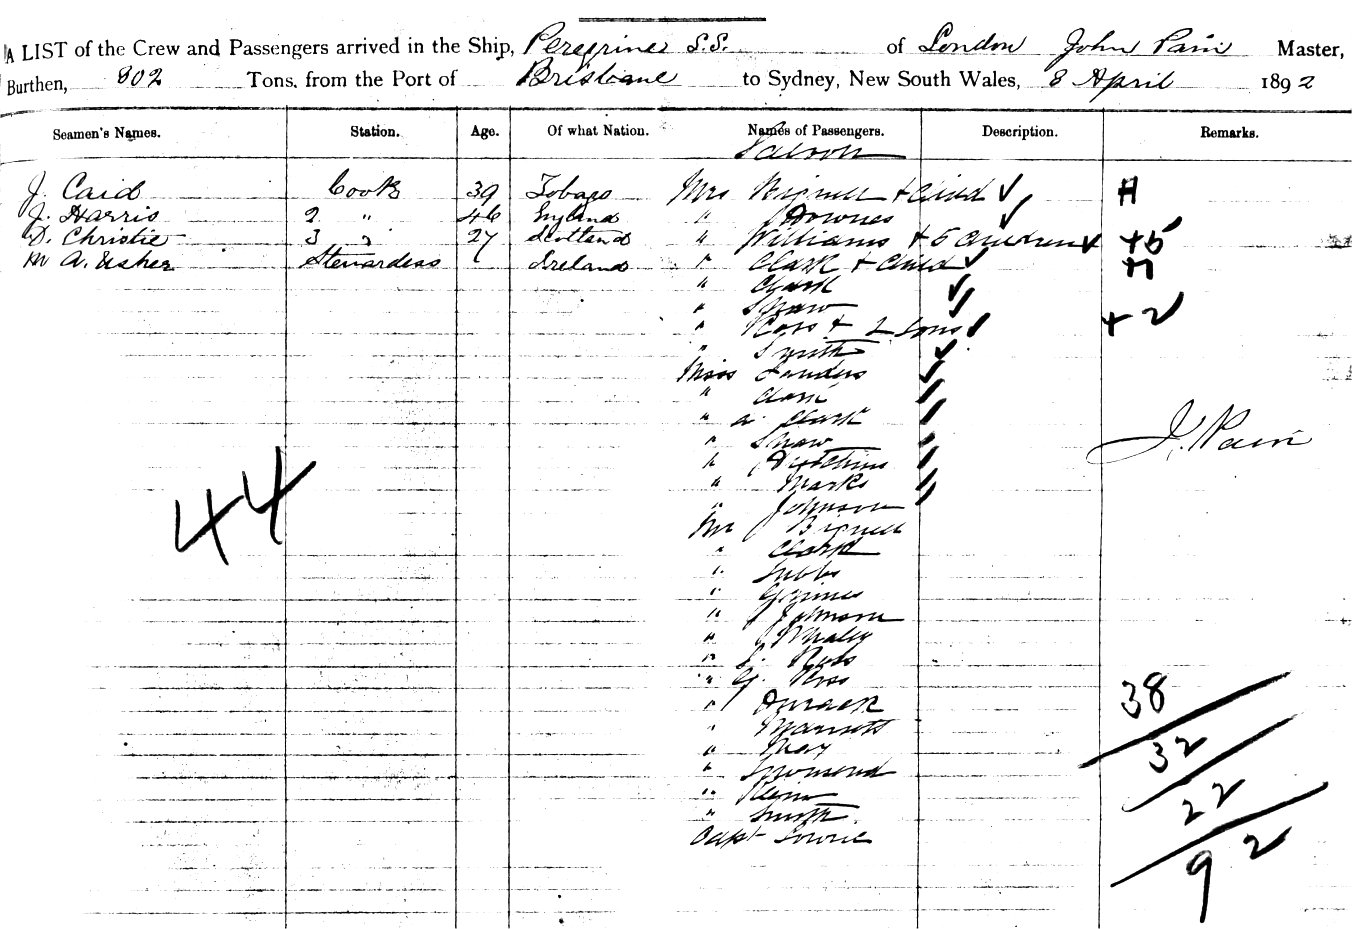 A LIST of the Crew and Passengers arrived in the Ship, Peregrine S.S. of London John Pain Master,
Burthen, 802 Tons, from the Port of Brisbane to Sydney, New South Wales, 8 April 1892
Seamen's Names. Station. Age. Of what Nation. Names of Passengers. Description. Remarks.
Saloon
J. Caid Cook 39 Tobago Mrs Bignell + child ✓ +1
J. Harris 2 " 46 England " Downes ✓
D. Christie 3 " 27 Scotland " Williams + 5 children ✓ +5
M A. Usher Stewardess Ireland " Clark + child ✓ +1
" Clark ✓
" Shaw ✓
" Ross + 2 sons ✓ +2
" Smith ✓
Miss Landers ✓
" Clark
" A. Clark
" Shaw
" Hutchins
" Marks
" Johnson
J. Pain
44
Mr Bignell
" Clark
"
"
" Johnson
" Whaley
" Ross
" G. Ross
" Durack
" Marriott
" May
" Townsend
" Klein
" Smith
Capt
38
32
22
92